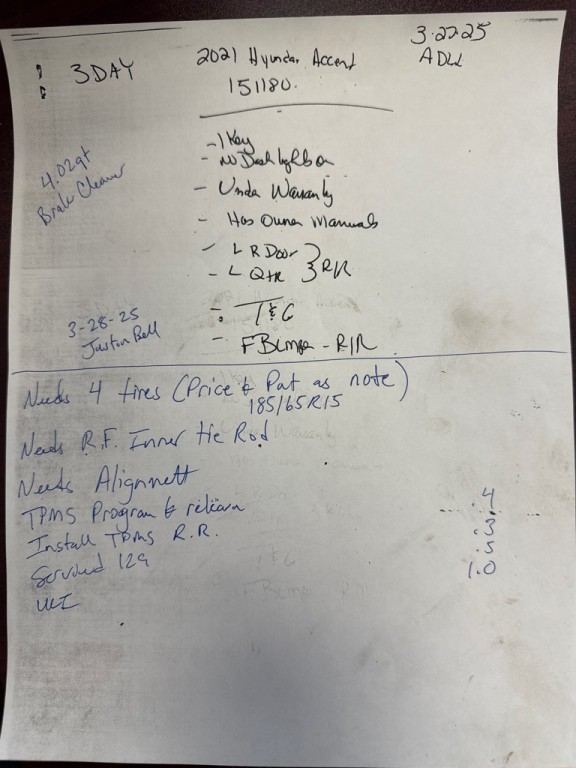 3-27-25
3DAY
2021 Hyundai Accent
151180.
- 1 Key
- No Dash lights on
- Under Warranty
- Has Owner Manuals
- L R Door } R/R
- L Qtr
- T & G
- F Bumper - R/R
4.02qt
Brake Cleaner
3-28-25
Juston Bell
Needs 4 tires (Price & Put as note)
185/65R15
Needs R.F. Inner tie Rod
Needs Alignmett
TPMS Program & relearn .4
Install TPMS R.R. .3
Serviced .5
1.0